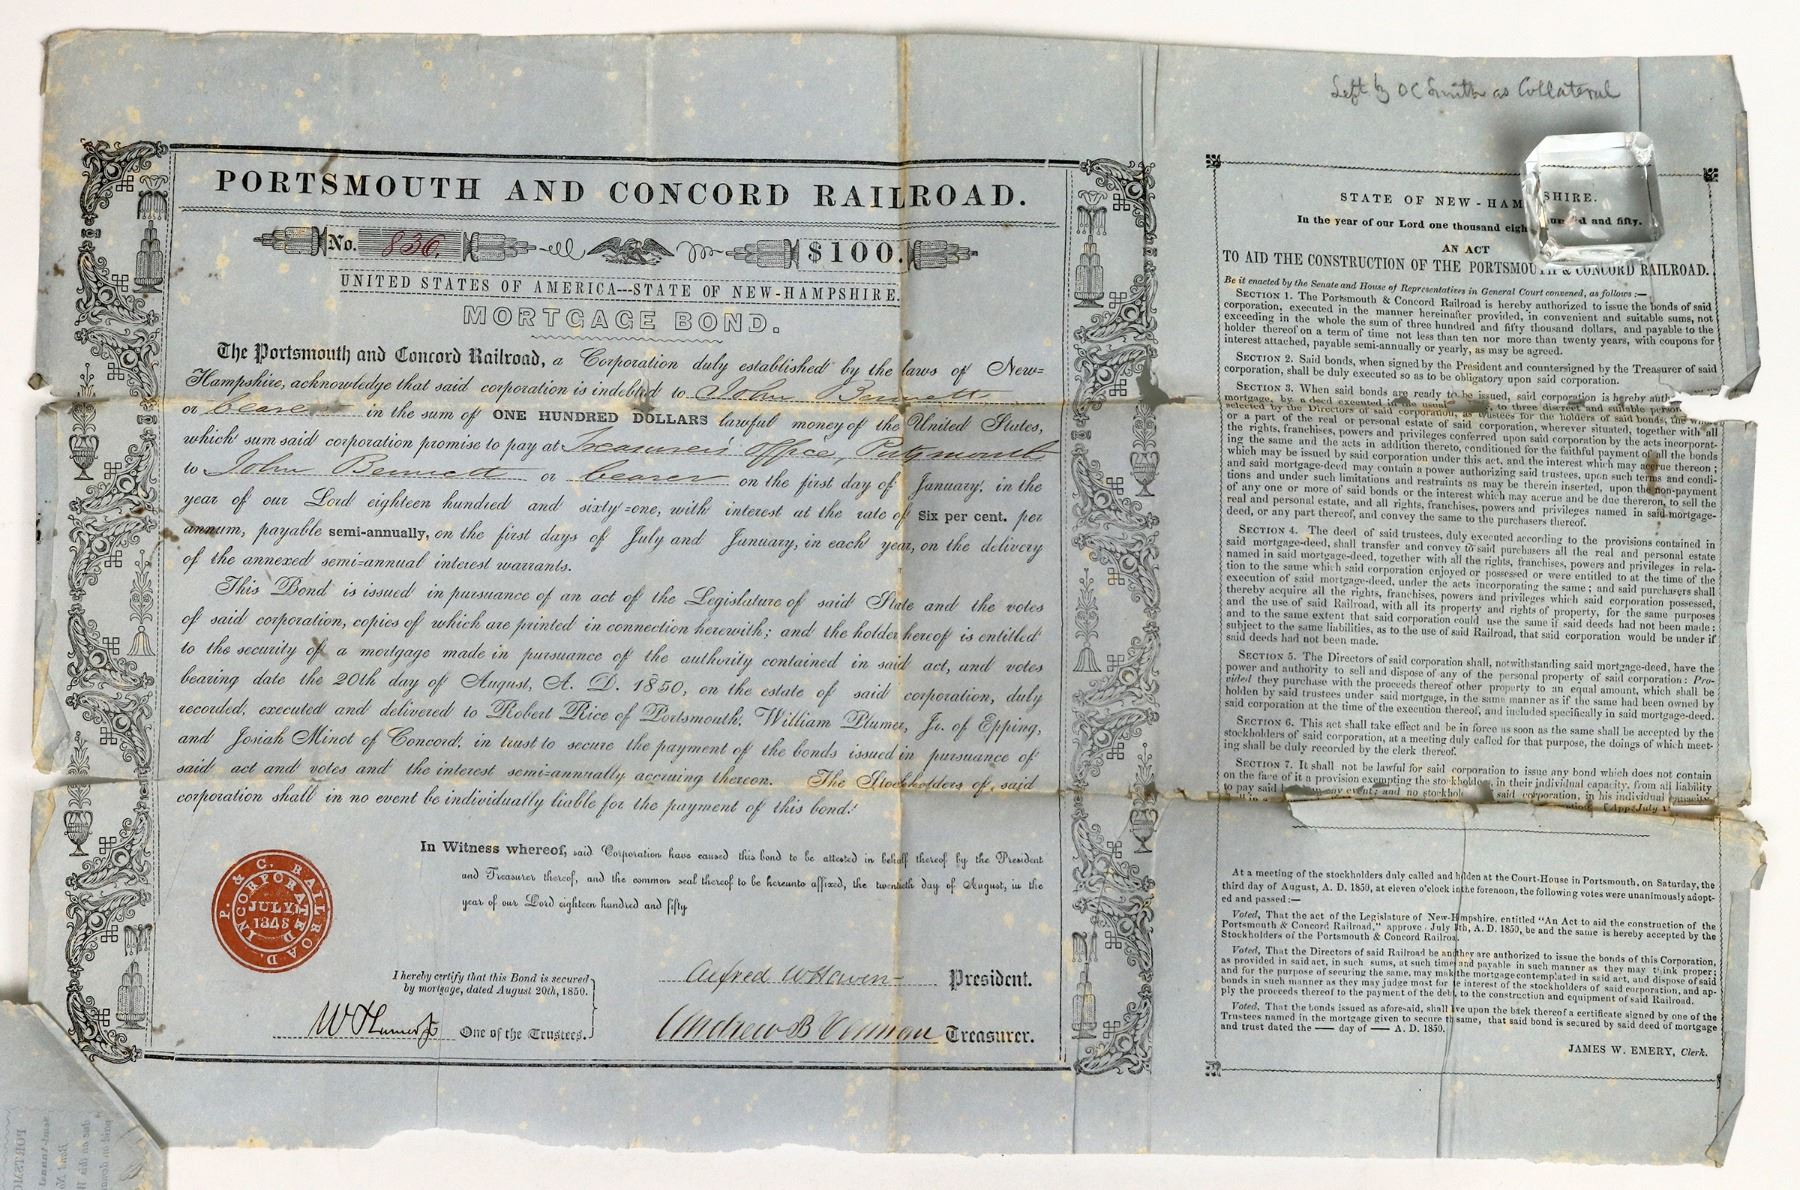 Left by OC Smith as Collateral
PORTSMOUTH AND CONCORD RAILROAD.
No. 836. $100.
UNITED STATES OF AMERICA---STATE OF NEW-HAMPSHIRE.
MORTGAGE BOND.
The Portsmouth and Concord Railroad, a Corporation duly established by the laws of New=
Hampshire, acknowledge that said corporation is indebted to John Bennett
or bearer in the sum of ONE HUNDRED DOLLARS lawful money of the United States,
which sum said corporation promise to pay at Treasurer's Office, Portsmouth
to John Bennett or bearer on the first day of January, in the
year of our Lord eighteen hundred and sixty=one, with interest at the rate of Six per cent. per
annum, payable semi-annually, on the first days of July and January, in each year, on the delivery
of the annexed semi=annual interest warrants.
This Bond is issued in pursuance of an act of the Legislature of said State and the votes
of said corporation, copies of which are printed in connection herewith; and the holder hereof is entitled
to the security of a mortgage made in pursuance of the authority contained in said act, and votes
bearing date the 20th day of August, A. D. 1850, on the estate of said corporation, duly
recorded, executed and delivered to Robert Rice of Portsmouth, William Plumer, Jr. of Epping,
and Josiah Minot of Concord, in trust to secure the payment of the bonds issued in pursuance of
said act and votes and the interest semi-annually accruing thereon. The Stockholders of said
corporation shall in no event be individually liable for the payment of this bond.
In Witness whereof, said Corporation have caused this bond to be attested in behalf thereof by the President
and Treasurer thereof, and the common seal thereof to be hereunto affixed, the twentieth day of August, in the
year of our Lord eighteen hundred and fifty
P. & C. RAILROAD.
INCORPORATED
JULY 1845
I hereby certify that this Bond is secured
by mortgage, dated August 20th, 1850.
W Plumer Jr One of the Trustees.
Alfred W Haven President.
Andrew B Treasurer.
STATE OF NEW-HAMPSHIRE.
In the year of our Lord one thousand eight hundred and fifty.
AN ACT
TO AID THE CONSTRUCTION OF THE PORTSMOUTH & CONCORD RAILROAD.
Be it enacted by the Senate and House of Representatives in General Court convened, as follows:—
SECTION 1. The Portsmouth & Concord Railroad is hereby authorized to issue the bonds of said
corporation, executed in the manner hereinafter provided, in convenient and suitable sums, not
exceeding in the whole the sum of three hundred and fifty thousand dollars, and payable to the
holder thereof on a term of time not less than ten nor more than twenty years, with coupons for
interest attached, payable semi-annually or yearly, as may be agreed.
SECTION 2. Said bonds, when signed by the President and countersigned by the Treasurer of said
corporation, shall be duly executed so as to be obligatory upon said corporation.
SECTION 3. When said bonds are ready to be issued, said corporation is hereby
mortgage, by a deed executed in the usual to three discreet and suitable
selected by the Directors of said corporation, as trustees for the holders of said bonds, the whole
or a part of the real or personal estate of said corporation, wherever situated, together with all
the rights, franchises, powers and privileges conferred upon said corporation by the acts incorporat-
ing the same and the acts in addition thereto, conditioned for the faithful payment of all the bonds
which may be issued by said corporation under this act, and the interest which may accrue thereon;
and said mortgage-deed may contain a power authorizing said trustees, upon such terms and condi-
tions and under such limitations and restraints as may be therein inserted, upon the non-payment
of any one or more of said bonds or the interest which may accrue and be due thereron, to sell the
real and personal estate, and all rights, franchises, powers and privileges named in said mortgage-
deed, or any part thereof, and convey the same to the purchasers thereof.
SECTION 4. The deed of said trustees, duly executed according to the provisions contained in
said mortgage-deed, shall transfer and convey to said purchasers all the real and personal estate
named in said mortgage-deed, together with all the rights, franchises, powers and privileges in rela-
tion to the same which said corporation enjoyed or possessed or were entitled to at the time of the
execution of said mortgage-deed, under the acts incorporating the same; and said purchasers shall
thereby acquire all the rights, franchises, powers and privileges which said corporation possessed,
and the use of said Railroad, with all its property and rights of property, for the same purposes
and to the same extent that said corporation could use the same if said deeds had not been made;
subject to the same liabilities, as to the use of said Railroad, that said corporation would be under if
said deeds had not been made.
SECTION 5. The Directors of said corporation shall, notwithstanding said mortgage-deed, have the
power and authority to sell and dispose of any of the personal property of said corporation: Pro-
vided they purchase with the proceeds thereof other property to an equal amount, which shall be
holden by said trustees under said mortgage, in the same manner as if the same had been owned by
said corporation at the time of the execution thereof, and included specifically in said mortgage-deed.
SECTION 6. This act shall take effect and be in force as soon as the same shall be accepted by the
stockholders of said corporation, at a meeting duly called for that purpose, the doings of which meet-
ing shall be duly recorded by the clerk thereof.
SECTION 7. It shall not be lawful for said corporation to issue any bond which does not contain
on the face of it a provision exempting the stockholders, in their individual capacity, from all liability
to pay said in any event; and no said corporation, in his individual capacity,
At a meeting of the stockholders duly called and holden at the Court-House in Portsmouth, on Saturday, the
third day of August, A. D. 1850, at eleven o'clock in the forenoon, the following votes were unanimously adopt-
ed and passed:—
Voted, That the act of the Legislature of New-Hampshire, entitled "An Act to aid the construction of the
Portsmouth & Concord Railroad," approved July A. D. 1850, be and the same is hereby accepted by the
Stockholders of the Portsmouth & Concord Railroad.
Voted, That the Directors of said Railroad be and they are authorized to issue the bonds of this Corporation,
as provided in said act, in such sums, at such time and payable in such manner as they may think proper;
and for the purpose of securing the same, may make the mortgage contemplated in said act, and dispose of said
bonds in such manner as they may judge most for the interest of the stockholders of said corporation, and ap-
ply the proceeds thereof to the payment of the debt, to the construction and equipment of said Railroad.
Voted, That the bonds issued as afore-said, shall have upon the back thereof a certificate signed by one of the
Trustees named in the mortgage given to secure the same, that said bond is secured by said deed of mortgage
and trust dated the — day of — A. D. 1850.
JAMES W. EMERY, Clerk.